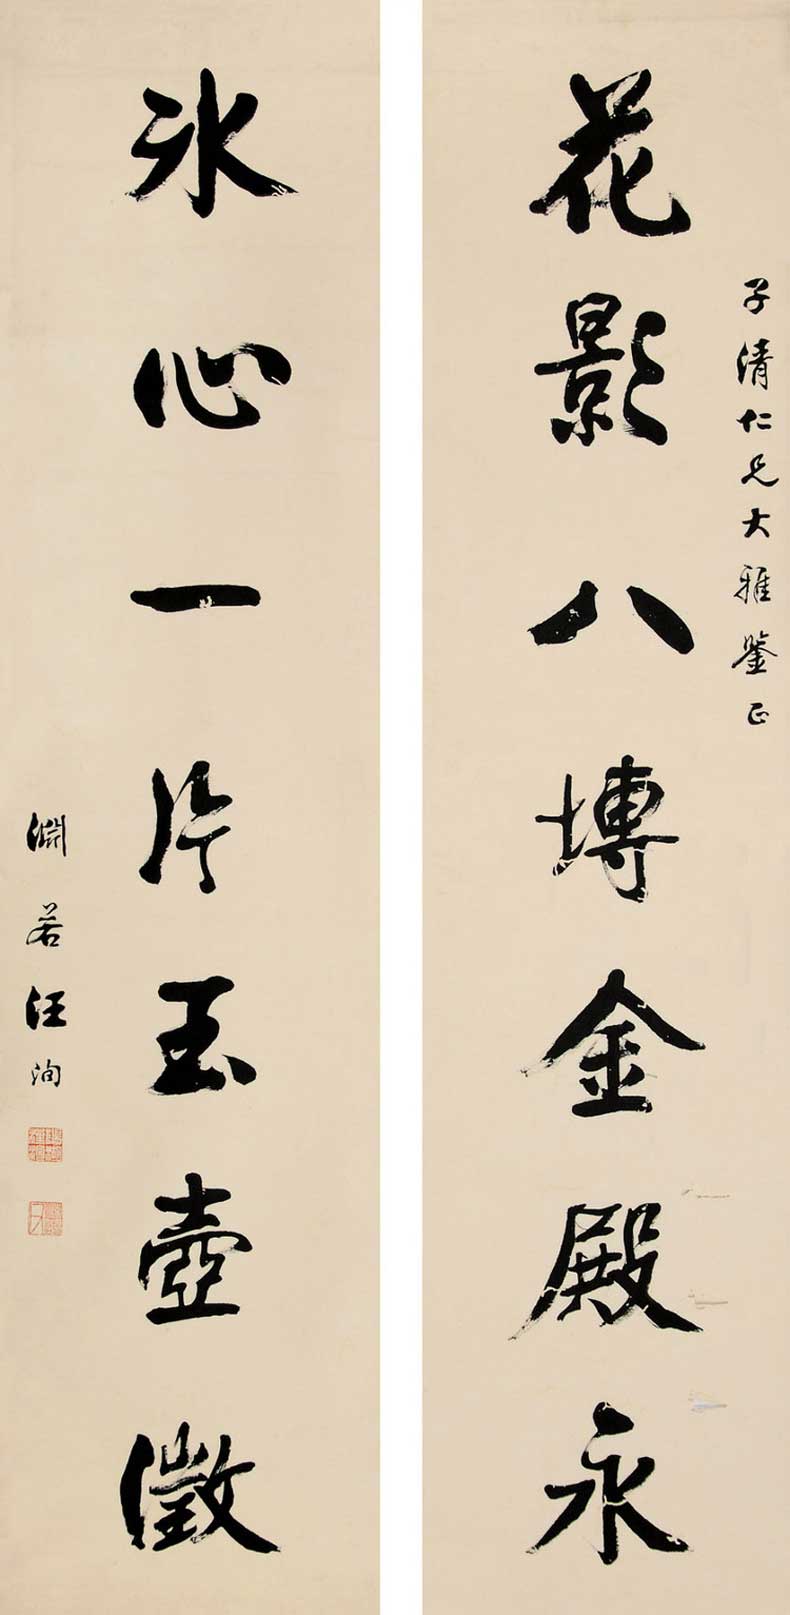 子清仁兄大雅鉴正
花影八塼金殿永
冰心一片玉壺徵
淵若汪洵